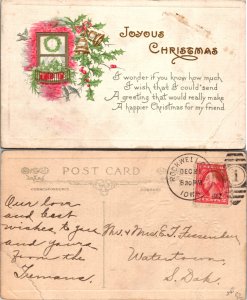 Joyous
Christmas
I wonder if you know how much
I wish that I could send
A greeting that would really make
A happier Christmas for my friend.
POST CARD
CORRESPONDENCE
ROCKWELL
DEC 21
530 PM
IOWA
1
Our love
and best
wishes to you
and yours
from the
Mr. & Mrs. E. T. Fessenden
Watertown
S. Dak.